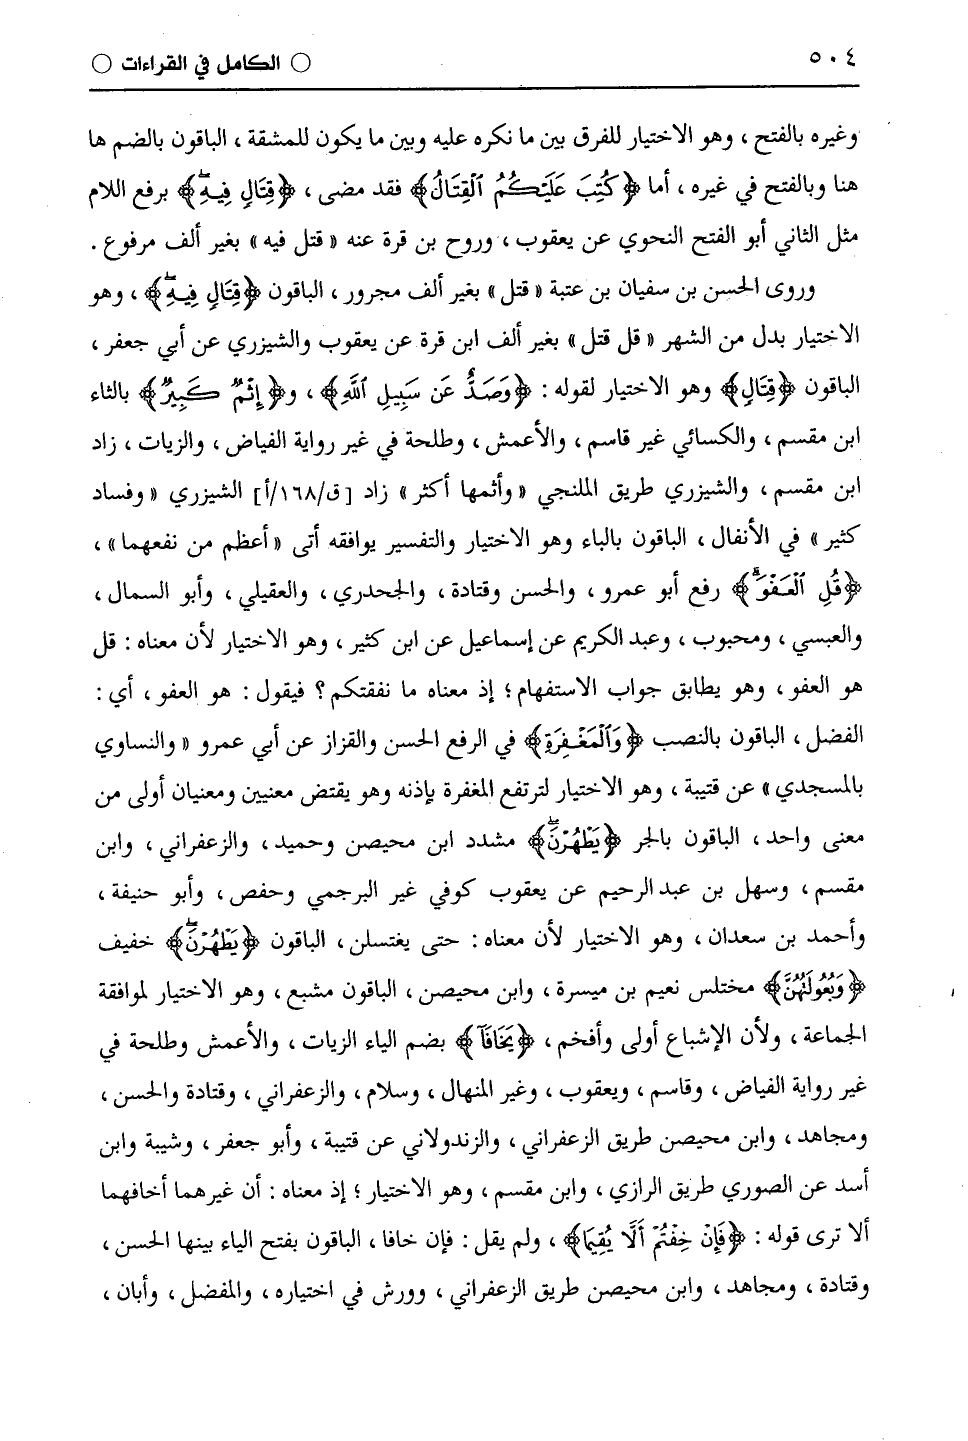 ٥٠٤ ○ الكامل في القراءات ○
وغيره بالفتح ، وهو الاختيار للفرق بين ما نكره عليه وبين ما يكون للمشقة ، الباقون بالضم ها
هنا وبالفتح في غيره ، أما ﴿كُتِبَ عَلَيْكُمُ الْقِتَالُ﴾ فقد مضى ، ﴿قِتَالٍ فِيهِ﴾ برفع اللام
مثل الثاني أبو الفتح النحوي عن يعقوب ، وروح بن قرة عنه « قتل فيه » بغير ألف مرفوع .
وروى الحسن بن سفيان بن عتبة « قتل » بغير ألف مجرور ، الباقون ﴿قِتَالٍ فِيهِ﴾ ، وهو
الاختيار بدل من الشهر « قل قتل » بغير ألف ابن قرة عن يعقوب والشيزري عن أبي جعفر ،
الباقون ﴿قِتَالٍ﴾ وهو الاختيار لقوله : ﴿وَصَدٌّ عَن سَبِيلِ اللَّهِ﴾ ، و﴿إِثْمٌ كَبِيرٌ﴾ بالثاء
ابن مقسم ، والكسائي غير قاسم ، والأعمش ، وطلحة في غير رواية الفياض ، والزيات ، زاد
ابن مقسم ، والشيزري طريق الملنجي « وأثمها أكثر » زاد [ق/١٦٨/أ] الشيزري « وفساد
كثير » في الأنفال ، الباقون بالباء وهو الاختيار والتفسير يوافقه أتى « أعظم من نفعهما » ،
﴿قُلِ الْعَفْوَ﴾ رفع أبو عمرو ، والحسن وقتادة ، والجحدري ، والعقيلي ، وأبو السمال ،
والعبسي ، ومحبوب ، وعبد الكريم عن إسماعيل عن ابن كثير ، وهو الاختيار لأن معناه : قل
هو العفو ، وهو يطابق جواب الاستفهام ؛ إذ معناه ما نفقتكم ؟ فيقول : هو العفو ، أي :
الفضل ، الباقون بالنصب ﴿وَالْمَغْفِرَةِ﴾ في الرفع الحسن والقزاز عن أبي عمرو « والنساوي
بالمسجدي » عن قتيبة ، وهو الاختيار لترتفع المغفرة بإذنه وهو يقتض معنيين ومعنيان أولى من
معنى واحد ، الباقون بالجر ﴿يَطْهُرْنَ﴾ مشدد ابن محيصن وحميد ، والزعفراني ، وابن
مقسم ، وسهل بن عبد الرحيم عن يعقوب كوفي غير البرجمي وحفص ، وأبو حنيفة ،
وأحمد بن سعدان ، وهو الاختيار لأن معناه : حتى يغتسلن ، الباقون ﴿يَطْهُرْنَ﴾ خفيف
﴿وَبُعُولَتُهُنَّ﴾ مختلس نعيم بن ميسرة ، وابن محيصن ، الباقون مشبع ، وهو الاختيار لموافقة
الجماعة ، ولأن الإشباع أولى وأفخم ، ﴿يَخَافَا﴾ بضم الياء الزيات ، والأعمش وطلحة في
غير رواية الفياض ، وقاسم ، ويعقوب ، وغير المنهال ، وسلام ، والزعفراني ، وقتادة والحسن ،
ومجاهد ، وابن محيصن طريق الزعفراني ، والزندولاني عن قتيبة ، وأبو جعفر ، وشيبة وابن
أسد عن الصوري طريق الرازي ، وابن مقسم ، وهو الاختيار ؛ إذ معناه : أن غيرهما أخافهما
ألا ترى قوله : ﴿فَإِنْ خِفْتُمْ أَلَّا يُقِيمَا﴾ ، ولم يقل : فإن خافا ، الباقون بفتح الياء بينها الحسن ،
وقتادة ، ومجاهد ، وابن محيصن طريق الزعفراني ، وورش في اختياره ، والمفضل ، وأبان ،